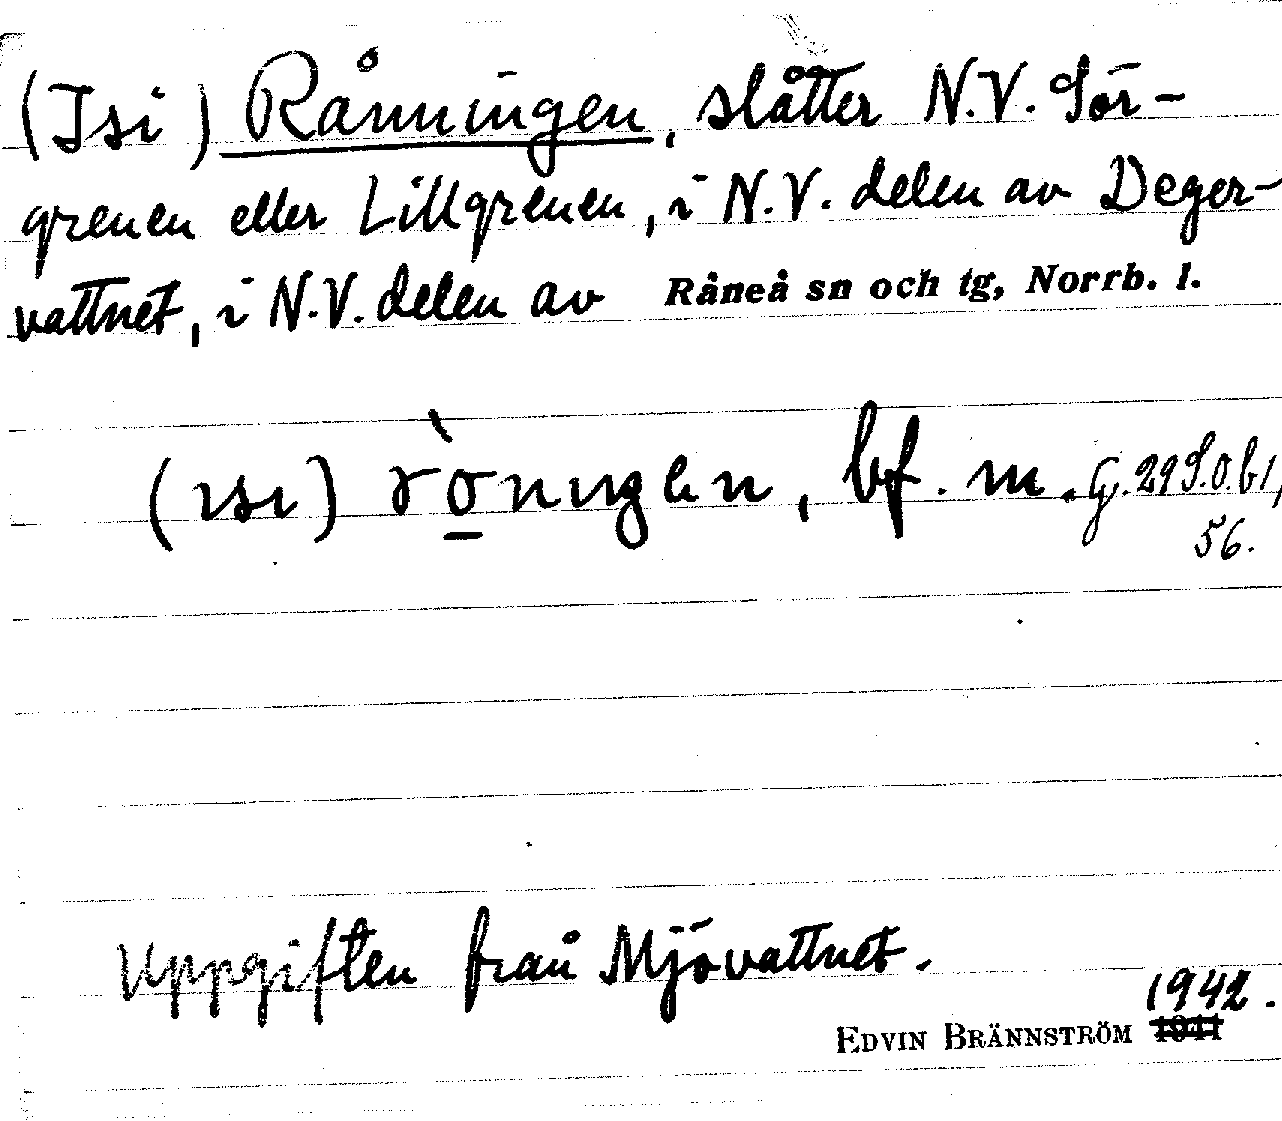 (Isi) Rånningen, slåtter N.V. Sör-
grenen eller Lillgrenen, i N.V. delen av Deger-
vattnet, i N.V. delen av Råneå sn och tg, Norrb. l.
(ısı) rònıŋen, bf. m. G. 29 S.O. b1,
56.
Uppgiften från Mjövattnet.
1942.
EDVIN BRÄNNSTRÖM 1941